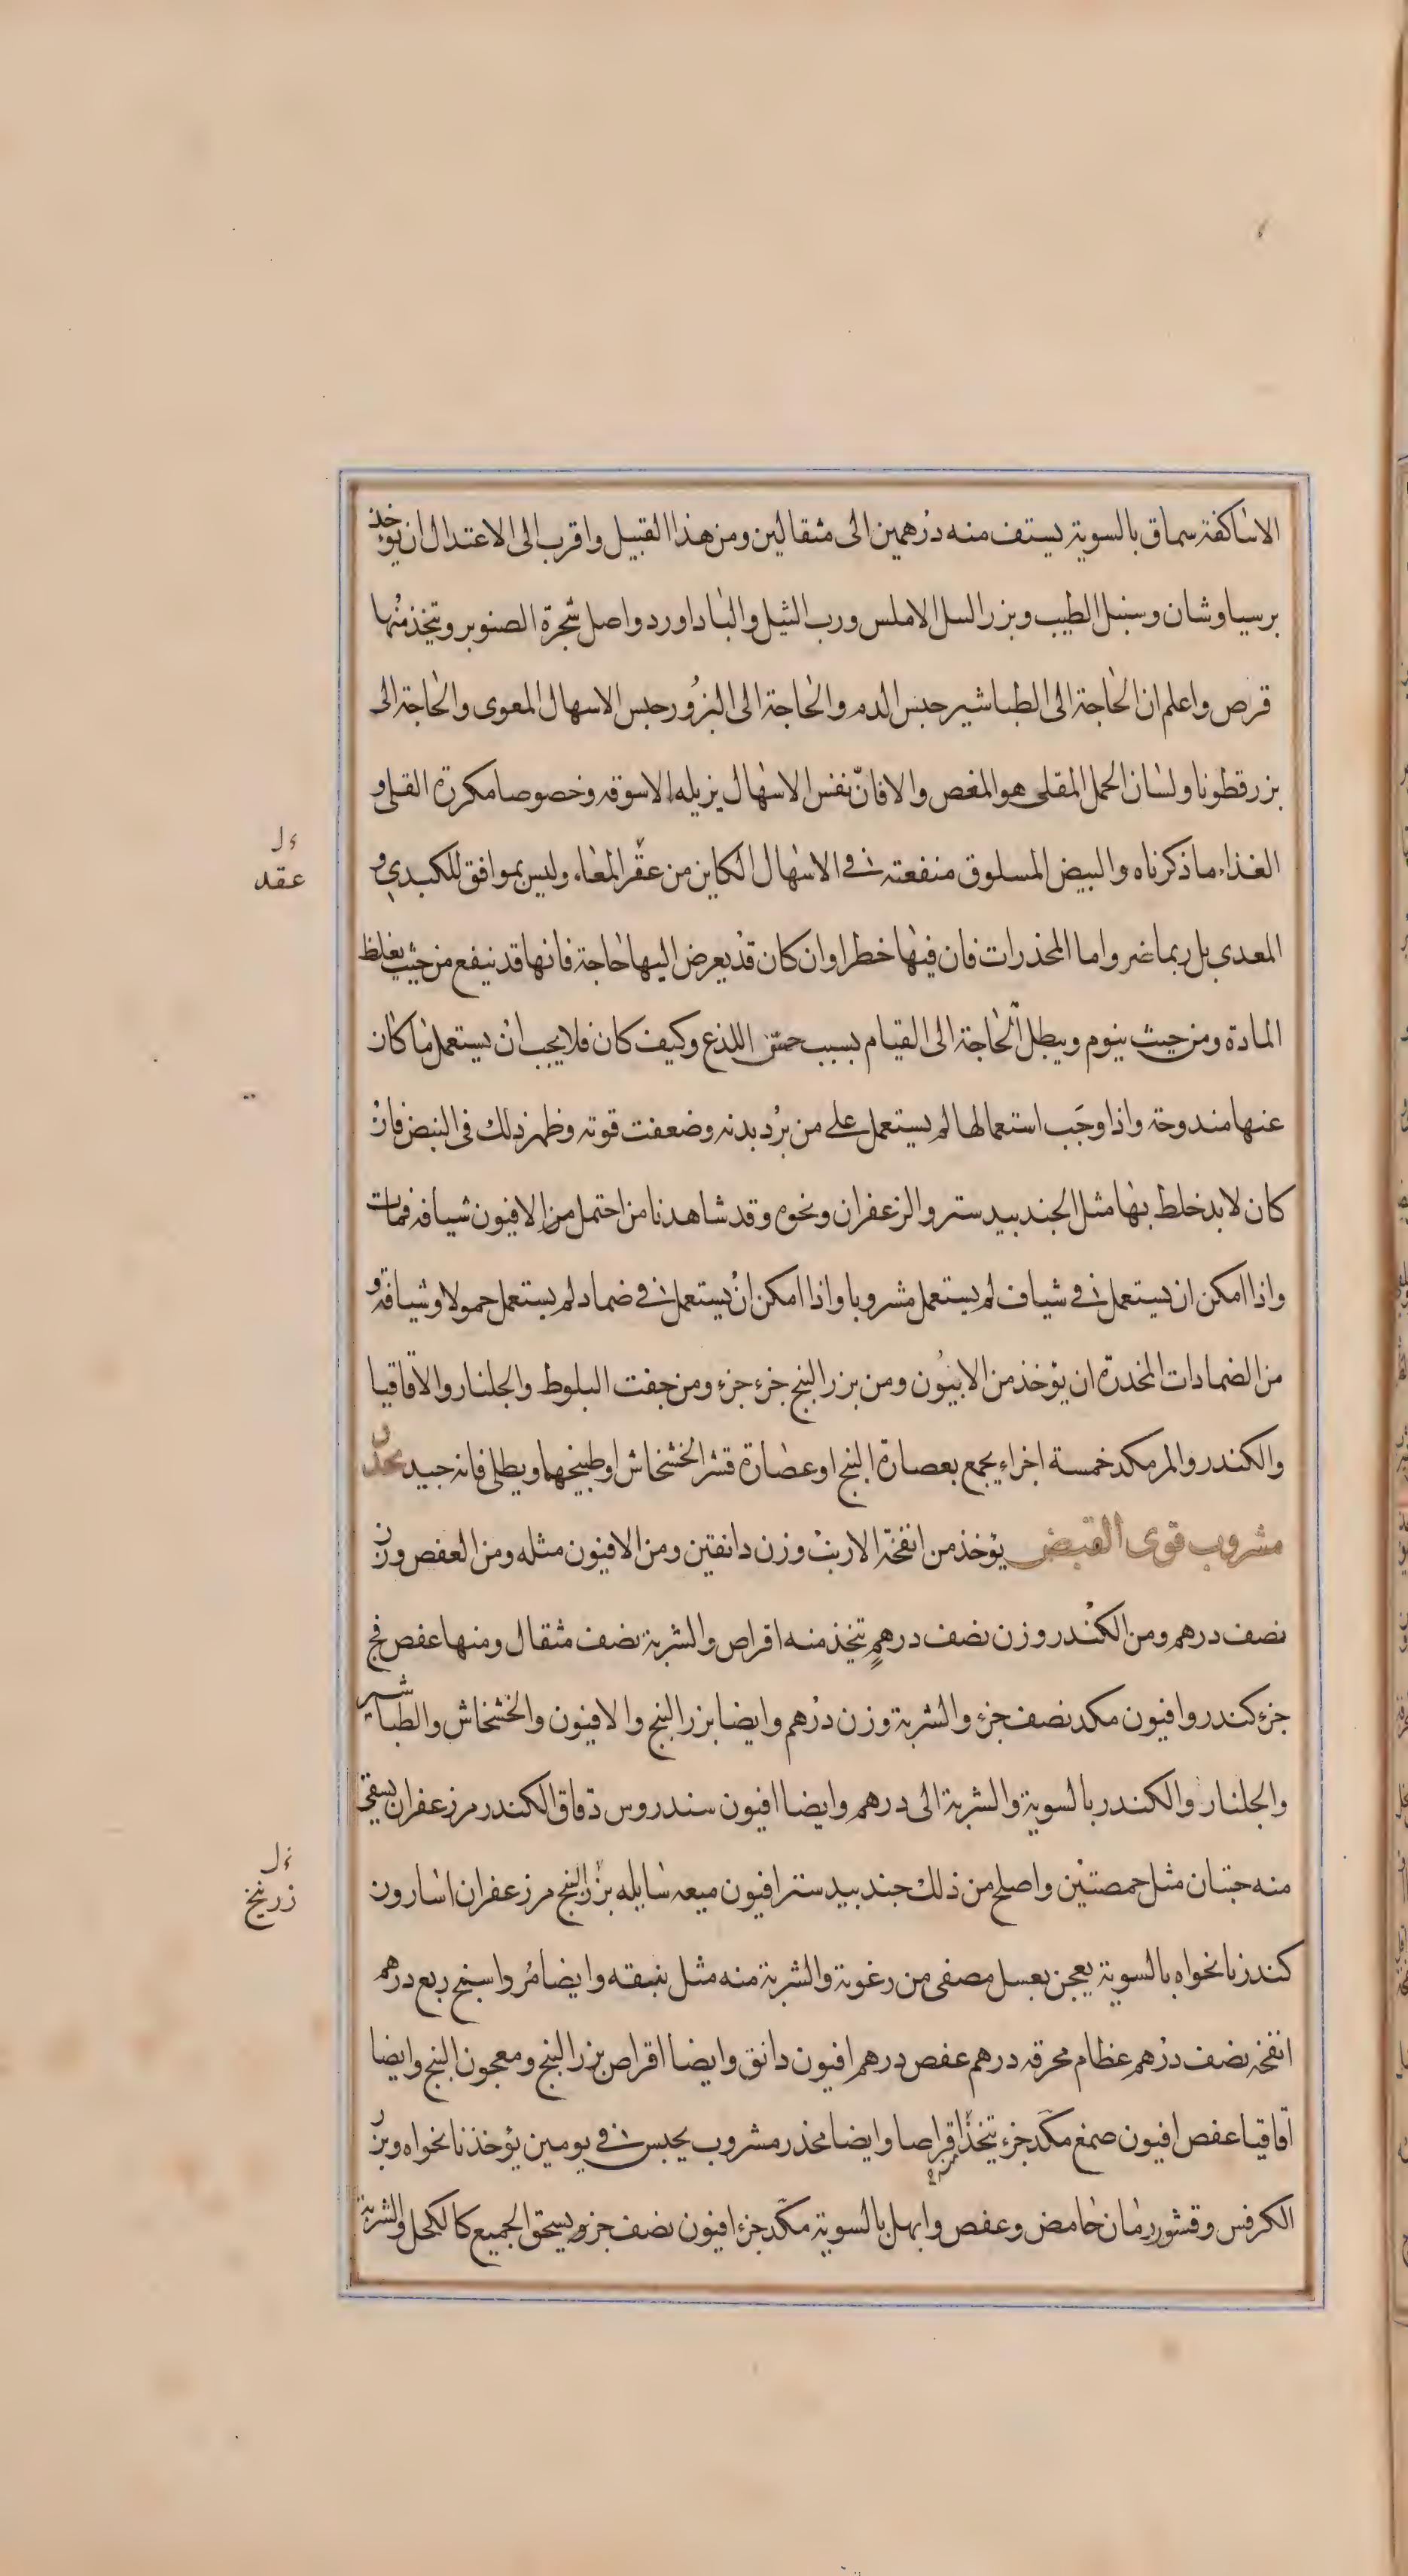 الاساكفة سماق بالسوية يستف منه درهمين الى مثقالين ومن هذا القبيل واقرب الى الاعتدال ان يوخذ
برسياوشان وسنبل الطيب وبزر السل الاملس ورب الثيل والباداورد واصل شجرة الصنوبر ويتخذ منها
قرص واعلم ان الحاجة الى الطباشير حبس الدم والحاجة الى البزور حبس الاسهال المعوى والحاجة الى
بزرقطونا ولسان الحمل المقلى هو المغص والا فانّ نفس الاسهال يزيله الاسوقه وخصوصا مكررة القلى و
الغذاء ما ذكرناه والبيض المسلوق منفعته فى الاسهال الكاين من عقر المعاء وليس بموافق للكبدي و
المعدى بل ربما ضر واما المخذرات فان فيها خطرا وان كان قد يعرض اليها حاجة فانها قد ينفع من حيث يغلظ
المادة ومن حيث ينوم ويبطل الحاجة الى القيام بسبب حسّ اللذع وكيف كان فلا يجب ان يستعمل ما كان
عنها مندوحة واذا وجَب استعمالها لم يستعمل على من برُد بدنه وضعفت قوته وظهر ذلك فى النبض فان
كان لا بد خلط بها مثل الجندبيدستر والزعفران ونحوه وقد شاهدنا من احتمل من الافيون شيافه فمات
واذا امكن ان يستعمل فى شياف لم يستعمل مشروبا واذا امكن ان يستعمل فى ضماد لم يستعمل حمولا وشيافة و
من الضمادات المخدرة ان يؤخذ من الابيون ومن بزر البنج جزء جزء ومن جفت البلوط والجلنار والاقاقيا
والكندر والمر مكد خمسة اجزاء يجمع بعصارة البنج او عصارة قشر الخشخاش او طبيخهما ويطلى فانه جيد مخدر
مشروب قوى القبض يؤخذ من انفخة الارنب وزن دانقين ومن الافيون مثله ومن العفص وزن
نصف درهم ومن الكندر وزن نصف درهمٍ يتخذ منه اقراص والشربة نصف مثقال ومنها عفص فج
جزء كندر وافيون مكد نصف جزء والشربة وزن درهم وايضا بزر البنج والافيون والخشخاش والطباشير
والجلنار والكندر بالسوية والشربة الى درهم وايضا افيون سندروس دقاق الكندر مر زعفران يسقى
منه حبتان مثل حمصتين واصلح من ذلك جندبيدستر افيون ميعه سايله بزر البنج مر زعفران اسارون
كندر نانخواه بالسوية يعجن بعسل مصفى من رغوية والشربة منه مثل نبقه وايضا مُر واسبنج ربع درهم
انفخه نصف درهم عظام محرقه درهم عفص درهم افيون دانق وايضا اقراص بزر البنج ومعجون البنج وايضا
اقاقيا عفص افيون صمغ مكد جزء يتخذ اقراصا وايضا مخدر مشروب يحبس فى يومين يؤخذ نانخواه وبزر
الكرفس وقشور رمان حامض وعفص وابهل بالسوية مكد جزء افيون نصف جزء ويسحق الجميع كالكحل والشربة
عقد
زرنيخ